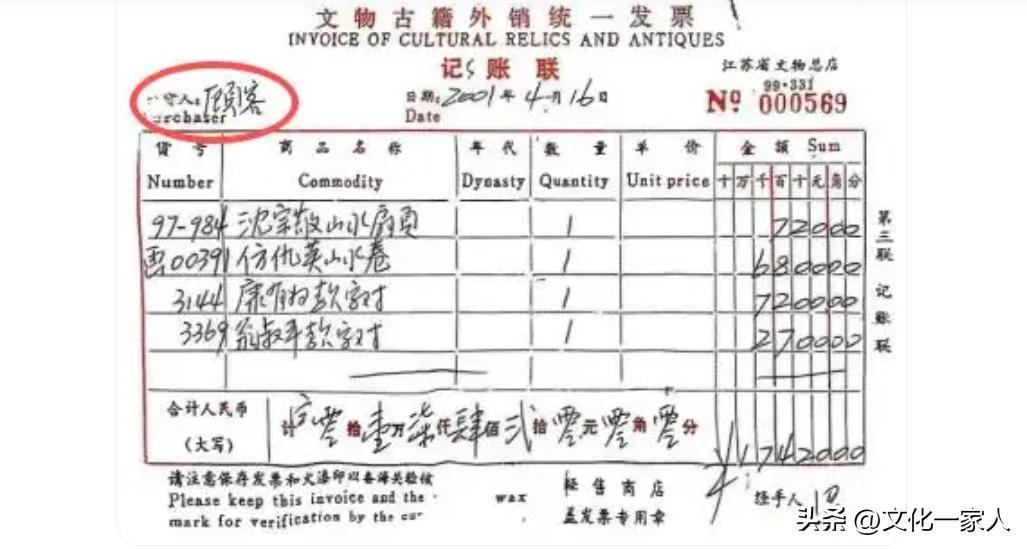 文物古籍外销统一发票
INVOICE OF CULTURAL RELICS AND ANTIQUES
记账联
江苏省文物总店
99·331
人:顾客
日期:2001年4月16日
Nº 000569
Purchaser
Date
货号 商品名称 年代 数量 单价 金额 Sum
Number Commodity Dynasty Quantity Unit price 十万千百十元角分
97-984 沈宗敬山水扇页 1 72000
00391 仿仇英山水卷 1 680000
3144 康有为款字对 1 720000
3369 翁叔平款字对 1 270000
第三联 记账联
合计人民币
(大写)
计 零拾壹万柒仟肆佰贰拾零元零角零分
1742000
请注意保存发票和火漆印以备海关检核
Please keep this invoice and the wax
mark for verification by the
经售商店
盖发票专用章
经手人
头条 @文化一家人